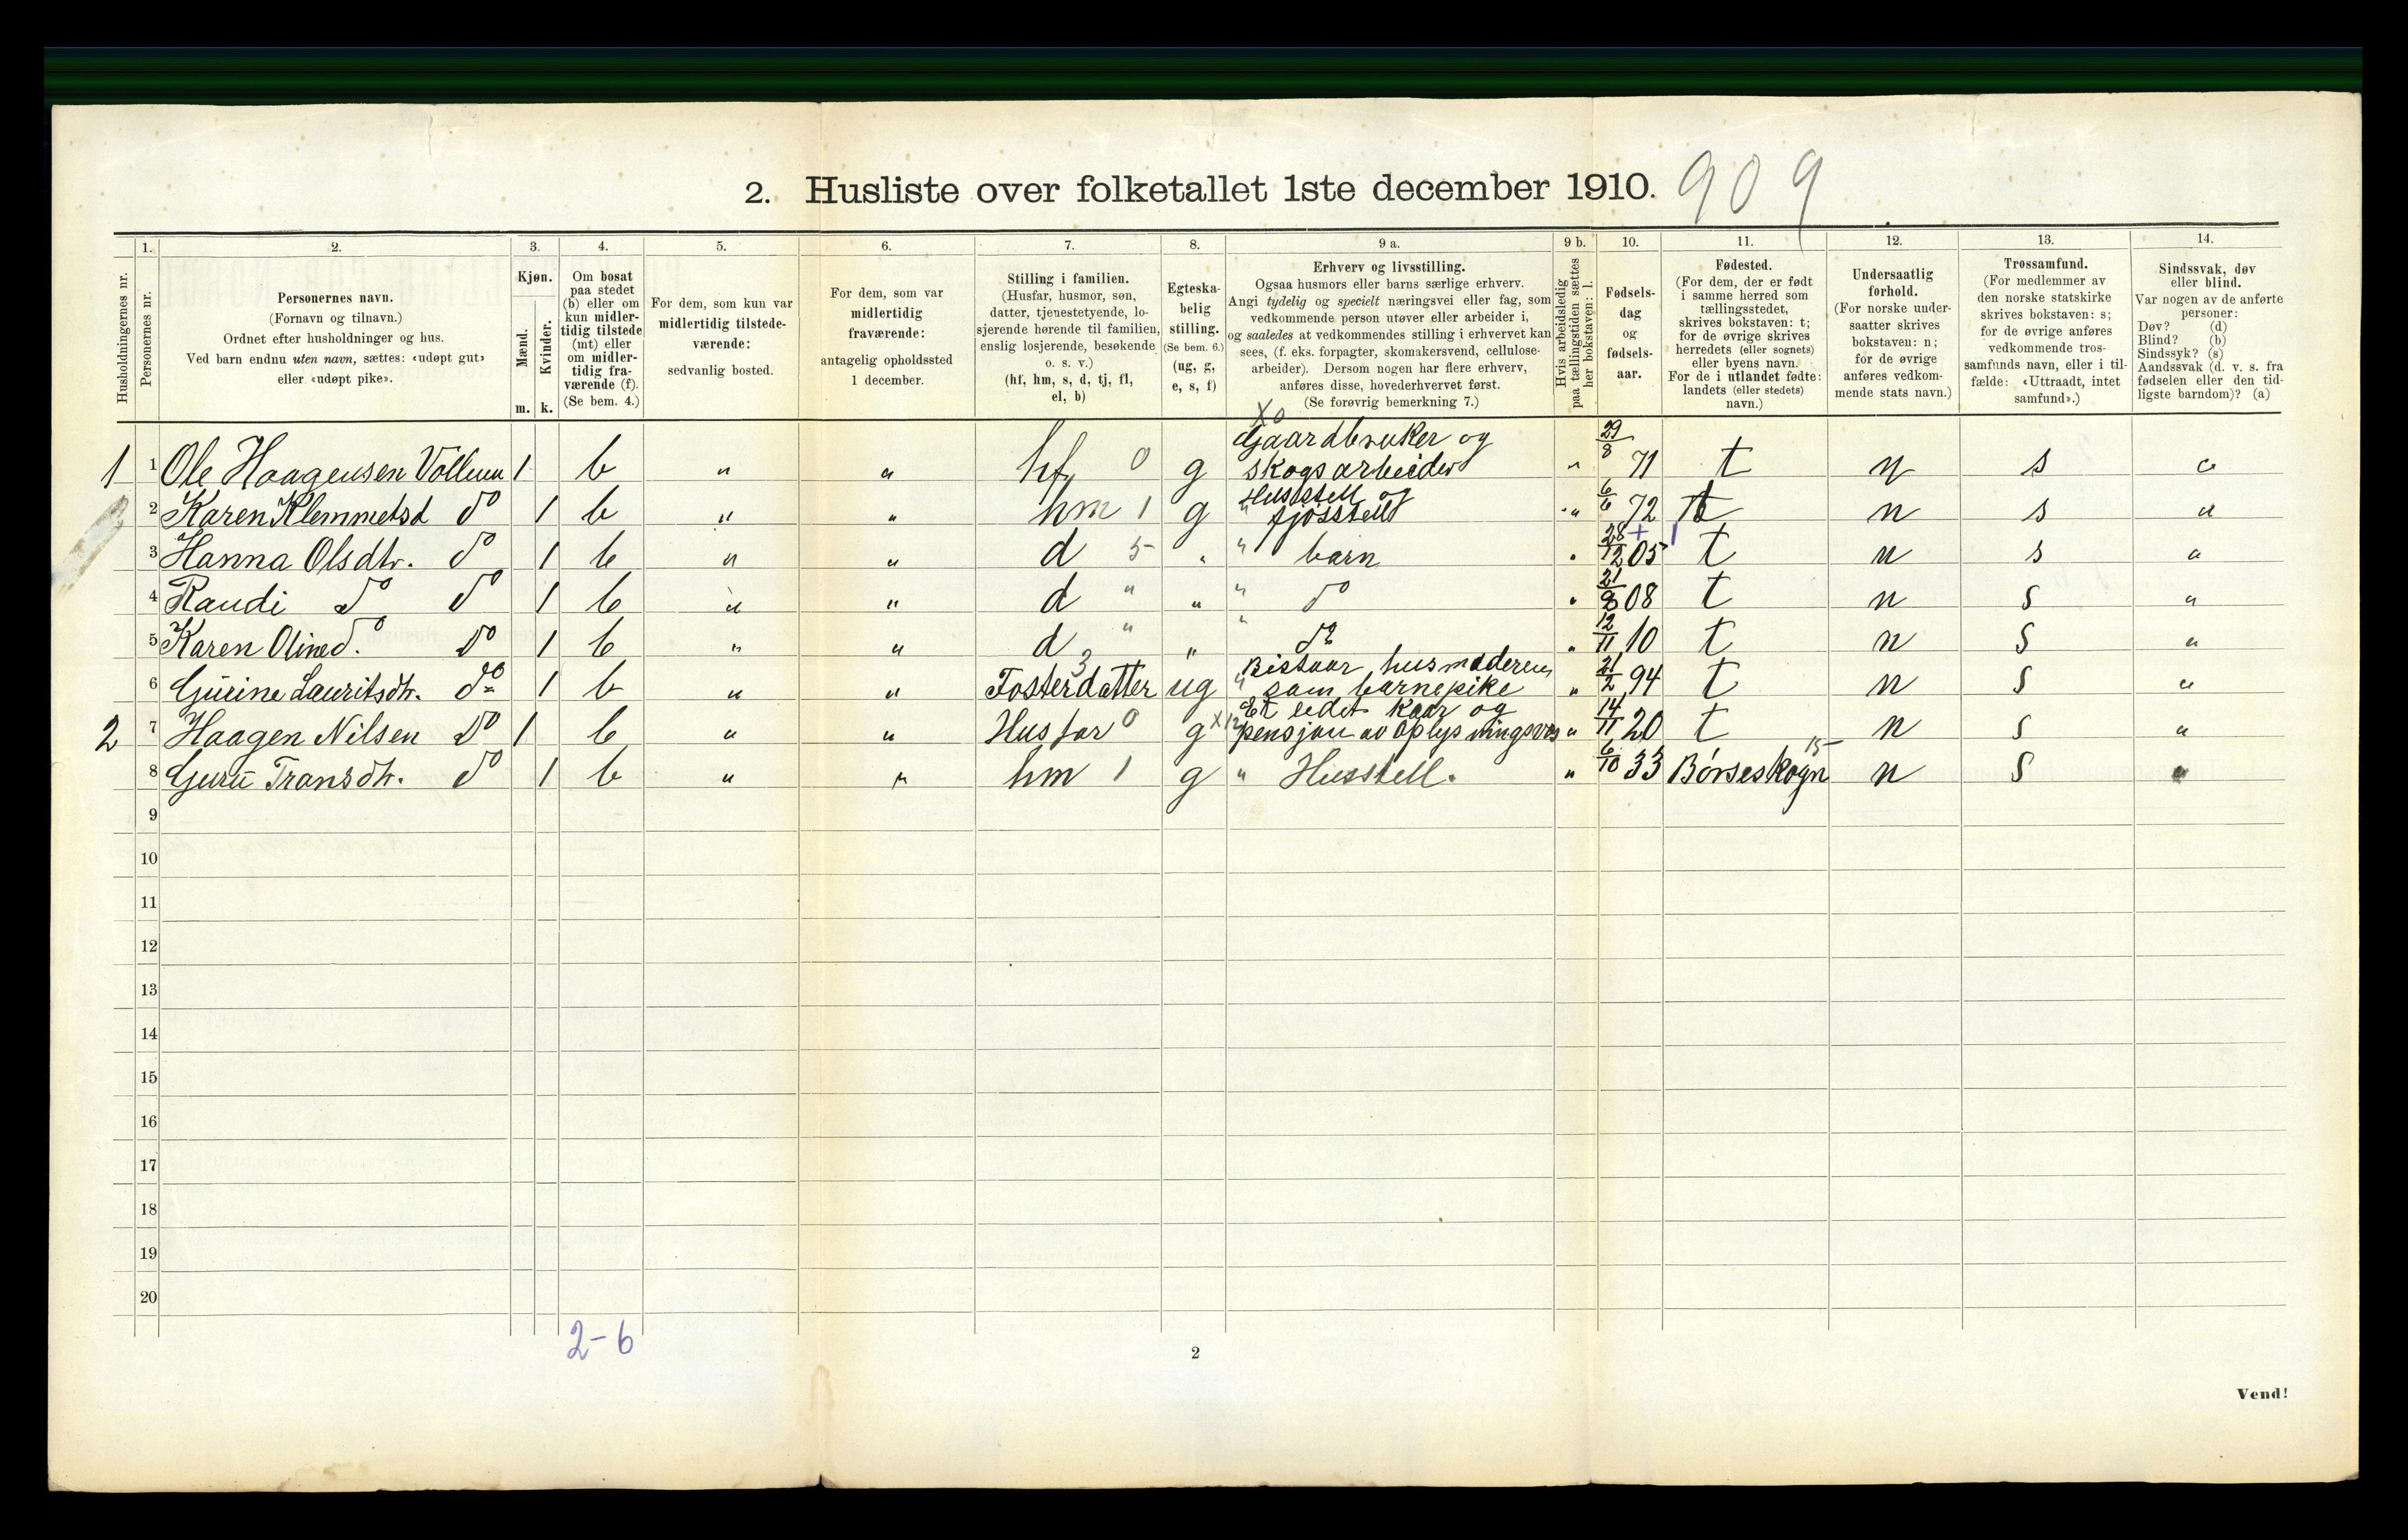 2. Husliste over folketallet 1ste december 1910. 909
1. 2. 3. 4. 5. 6. 7. 8. 9 a. 9 b. 10. 11. 12. 13. 14.
Husholdningernes nr.
Personernes nr.
Personernes navn.
(Fornavn og tilnavn.)
Ordnet efter husholdninger og hus.
Ved barn endnu uten navn, sættes: «udøpt gut»
eller «udøpt pike».
Kjøn.
Mænd.
Kvinder.
m. k.
Om bosat
paa stedet
(b) eller om
kun midler-
tidig tilstede
(mt) eller
om midler-
tidig fra-
værende (f).
(Se bem. 4.)
For dem, som kun var
midlertidig tilstede-
værende:
sedvanlig bosted.
For dem, som var
midlertidig
fraværende:
antagelig opholdssted
1 december.
Stilling i familien.
(Husfar, husmor, søn,
datter, tjenestetyende, lo-
sjerende hørende til familien,
enslig losjerende, besøkende
o. s. v.)
(hf, hm, s, d, tj, fl,
el, b)
Egteska-
belig
stilling.
(Se bem. 6.)
(ug, g,
e, s, f)
Erhverv og livsstilling.
Ogsaa husmors eller barns særlige erhverv.
Angi tydelig og specielt næringsvei eller fag, som
vedkommende person utøver eller arbeider i,
og saaledes at vedkommendes stilling i erhvervet kan
sees, (f. eks. forpagter, skomakersvend, cellulose-
arbeider). Dersom nogen har flere erhverv,
anføres disse, hovederhvervet først.
(Se forøvrig bemerkning 7.)
Hvis arbeidsledig
paa tællingstiden sættes
her bokstaven: l.
Fødsels-
dag
og
fødsels-
aar.
Fødested.
(For dem, der er født
i samme herred som
tællingsstedet,
skrives bokstaven: t;
for de øvrige skrives
herredets (eller sognets)
eller byens navn.
For de i utlandet fødte:
landets (eller stedets)
navn.)
Undersaatlig
forhold.
(For norske under-
saatter skrives
bokstaven: n;
for de øvrige
anføres vedkom-
mende stats navn.)
Trossamfund.
(For medlemmer av
den norske statskirke
skrives bokstaven: s;
for de øvrige anføres
vedkommende tros-
samfunds navn, eller i til-
fælde: «Uttraadt, intet
samfund».)
Sindssvak, døv
eller blind.
Var nogen av de anførte
personer:
Døv? (d)
Blind? (b)
Sindssyk? (s)
Aandssvak (d. v. s. fra
fødselen eller den tid-
ligste barndom)? (a)
X0
1 1 Ole Haagensen Vollum 1 b " " hf 0 g Gaardbruker og skogsarbeider " 29/8 71 t n s "
2 Karen Klemmetsd do 1 b " " hm 1 g " Husstell og fjøsstell " 6/6 72 t n s "
3 Hanna Olsdtr. do 1 b " " d 5 " " barn " 28/12 05 t n s "
4 Randi do do 1 b " " d " " " do " 21/8 08 t n s "
5 Karen Oline d. do 1 b " " d " " " do " 12/11 10 t n s "
6 Gurine Lauritsdtr. do 1 b " " Fosterdatter 3 ug " Bistaar husmoderen som barnepike " 21/2 94 t n s "
2 7 Haagen Nilsen do 1 b " " Husfar 0 g X12 Et ledet Kaar og pensjon av Oplysningsves " 14/11 20 t n s "
8 Guru Transdtr. do 1 b " " hm 1 g " Husstell. " 6/10 33 Børseskogn 15 n s "
9
10
11
12
13
14
15
16
17
18
19
20
2-6
2
Vend!